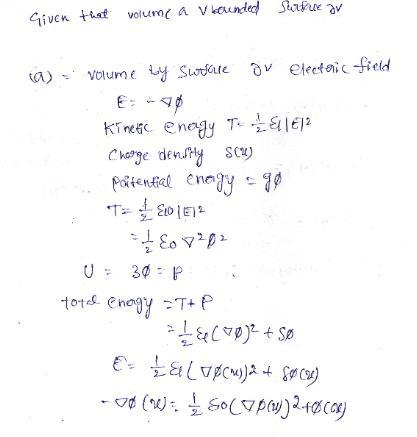 Given that volume a V bounded Surface ∂v
(a) = volume by Surface ∂v electric field
E = -∇φ
Kinetic energy T = 1/2 ε|E|2
Charge density S(x)
potential energy = gφ
T = 1/2 ε0 |E|2
= 1/2 ε0 ∇2φ2
U = 3φ = P
total energy = T + P
= 1/2 ε(∇φ)2 + Sφ
E = 1/2 ε(∇φ(x))2 + Sφ(x)
-∇φ(x) = 1/2 ε0(∇φ(x))2 + φ(x)